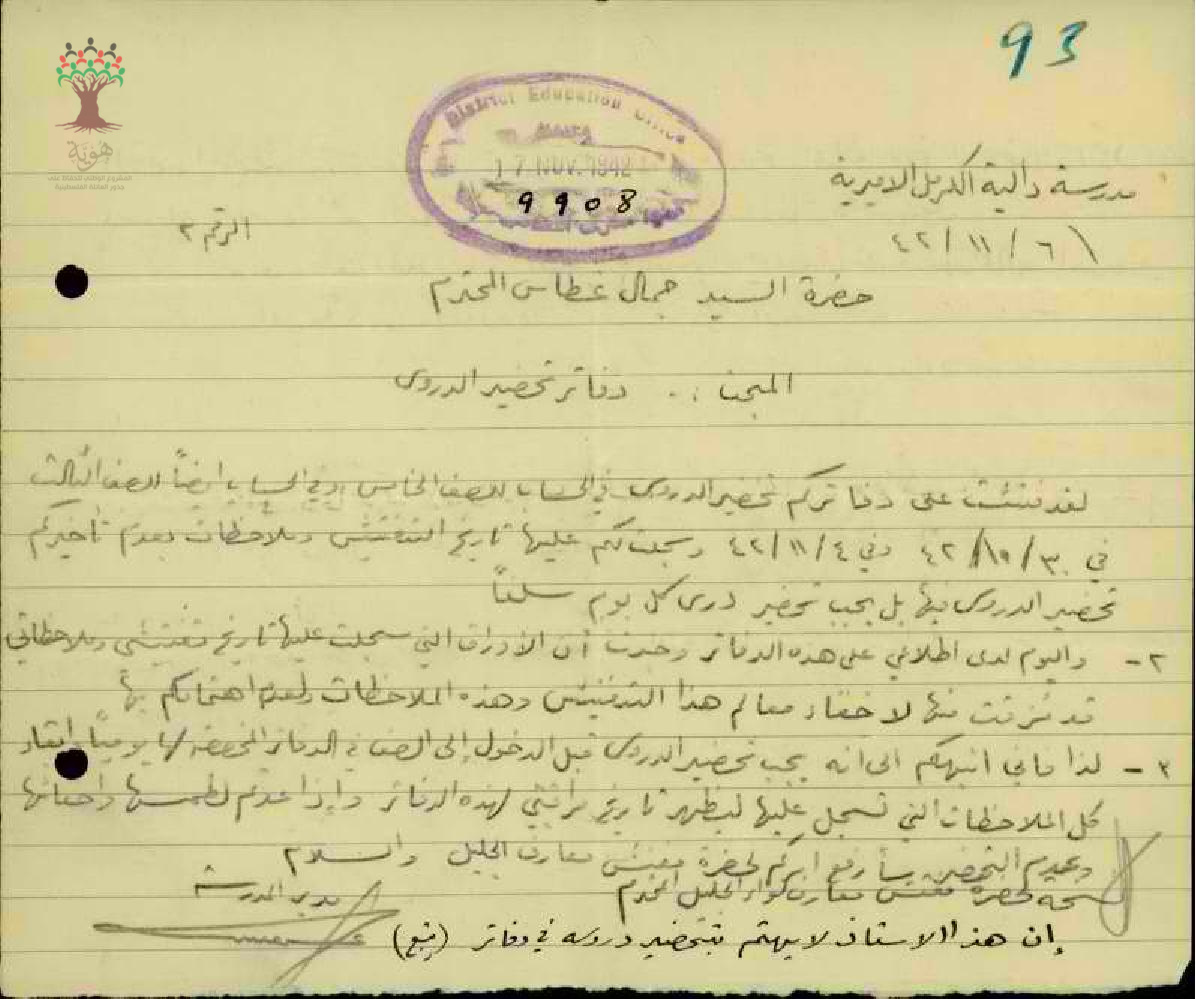 93
هوية
المشروع الوطني للحفاظ على
جذور العائلة الفلسطينية
District Education Office
17 NOV. 1942
9908
مدرسة دالية الكرمل الاميرية
٤٢/١١/٦
الرقم ٢
حضرة السيد جمال غطاس المحترم
المبحث :. دفاتر تحضير الدروس
لقد فتشت على دفاتركم تحضير الدروس في الحساب للصف الخامس وفي الحساب ايضاً للصف الثالث
في ٤٢/١٠/٣٠ وفي ٤٢/١١/٤ وسجلت لكم عليها تاريخ التفتيش وملاحظات بعدم تأخيركم
تحضير الدروس فيها بل يجب تحضير درس كل يوم سلفاً
٢ - واليوم لدى اطلاعي على هذه الدفاتر وجدت أن الأوراق التي سجلت عليها تاريخ تفتيشي وملاحظاتي
قد مُزقت منها لاخفاء معالم هذا التفتيش وهذه الملاحظات ولعدم اهتمامكم بها
٣ - لذا فاني انبهكم الى انه يجب تحضير الدروس قبل الدخول إلى الصف في الدفاتر المخصصة لها يومياً وابقاء
كل الملاحظات التي تسجل عليها ليظهر تاريخ مراقبتي لهذه الدفاتر وإذا عدتم لطمسها واخفائها
وعدم التحضير سأرفع امركم لحضرة مفتش معارف الجليل والسلام
نسخة لحضرة مفتش معارف لواء الجليل المحترم
مدير المدرسة
إن هذا الاستاذ لا يهتم بتحضير دروسه في دفاتر (يتبع)